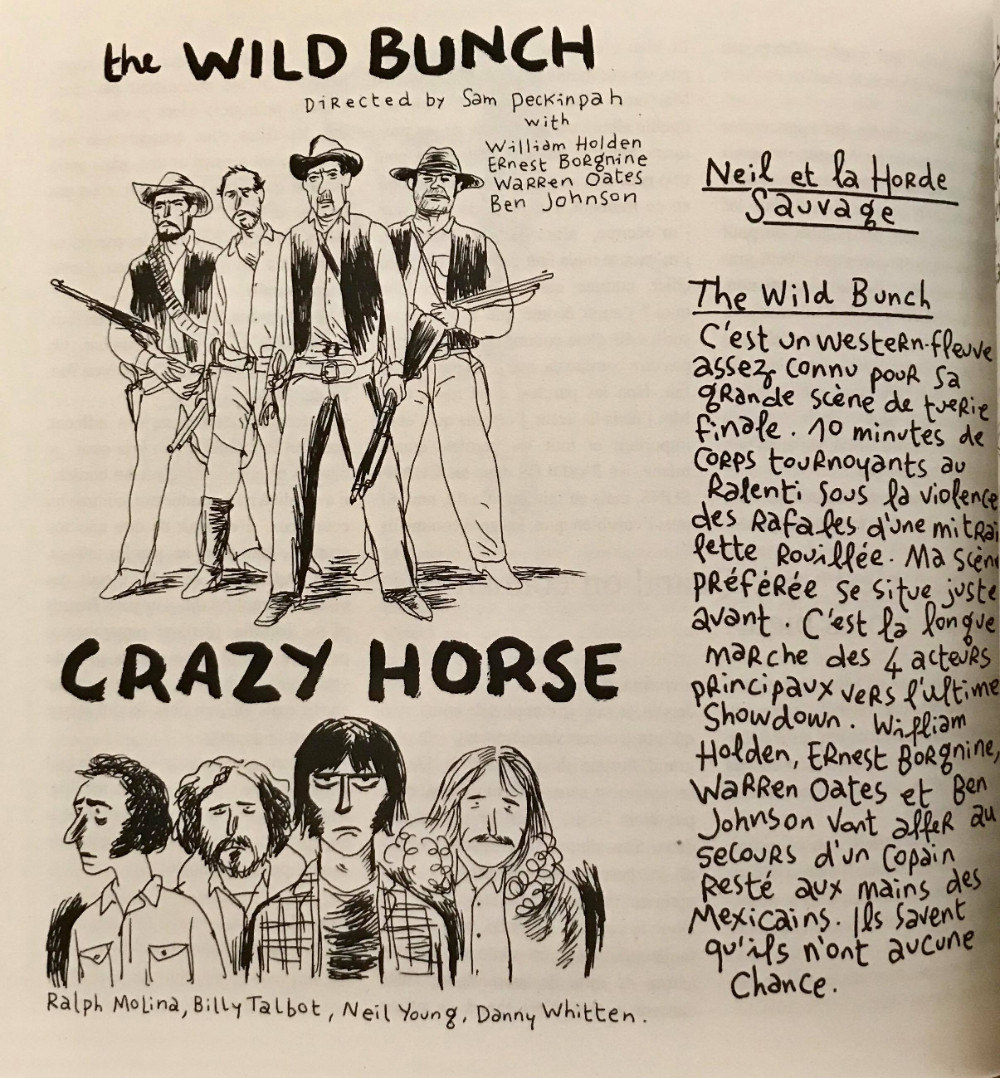 the WILD BUNCH
Directed by Sam Peckinpah
with
William Holden
Ernest Borgnine
Warren Oates
Ben Johnson
CRAZY HORSE
Ralph Molina, Billy Talbot, Neil Young, Danny Whitten.
Neil et la Horde
Sauvage
The Wild Bunch
C'est un western-fleuve
assez connu pour sa
grande scène de tuerie
finale. 10 minutes de
corps tournoyants au
ralenti sous la violence
des rafales d'une mitrai
lette rouillée. Ma scène
préférée se situe juste
avant. C'est la longue
marche des 4 acteurs
principaux vers l'ultime
Showdown. William
Holden, Ernest Borgnine,
Warren Oates et Ben
Johnson vont aller au
secours d'un copain
resté aux mains des
Mexicains. Ils savent
qu'ils n'ont aucune
chance.